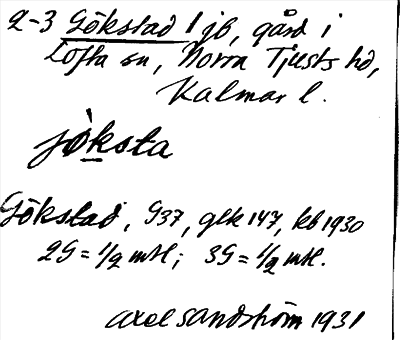 2-3 Gökstad 1 jb, gård i
Lofta sn, Norra Tjusts hd,
Kalmar l.
jö̀ksta
Gökstad, G37, glk 147, kb 1930
2G = 1/2 mtl; 3G = 1/2 mtl.
Axel Sandström 1931